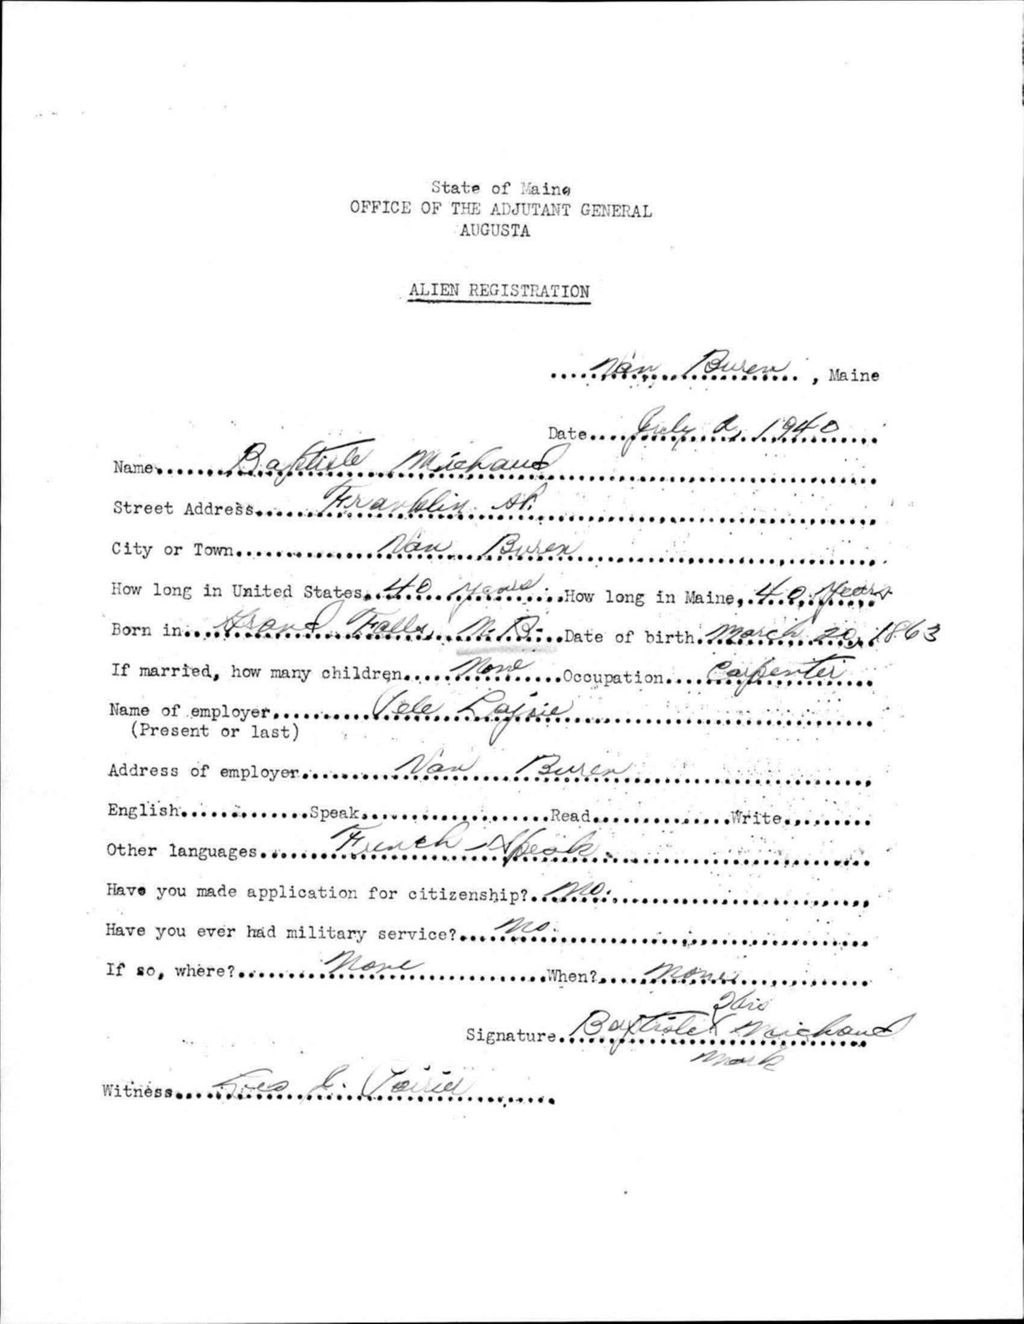 State of Maine
OFFICE OF THE ADJUTANT GENERAL
AUGUSTA
ALIEN REGISTRATION
Van Buren, Maine
Date July 2, 1940
Name Baptiste Michaud
Street Address Franklin St.
City or Town Van Buren
How long in United States 40 years How long in Maine 40 Years
Born in Grand Falls, N.B. Date of birth March 20, 1863
If married, how many children None Occupation Carpenter
Name of employer
(Present or last)
Address of employer Van Buren
English Speak Read Write
Other languages French Speak
Have you made application for citizenship? No.
Have you ever had military service? No.
If so, where? None When? None
His
Signature Baptiste X Michaud
Mark
Witness